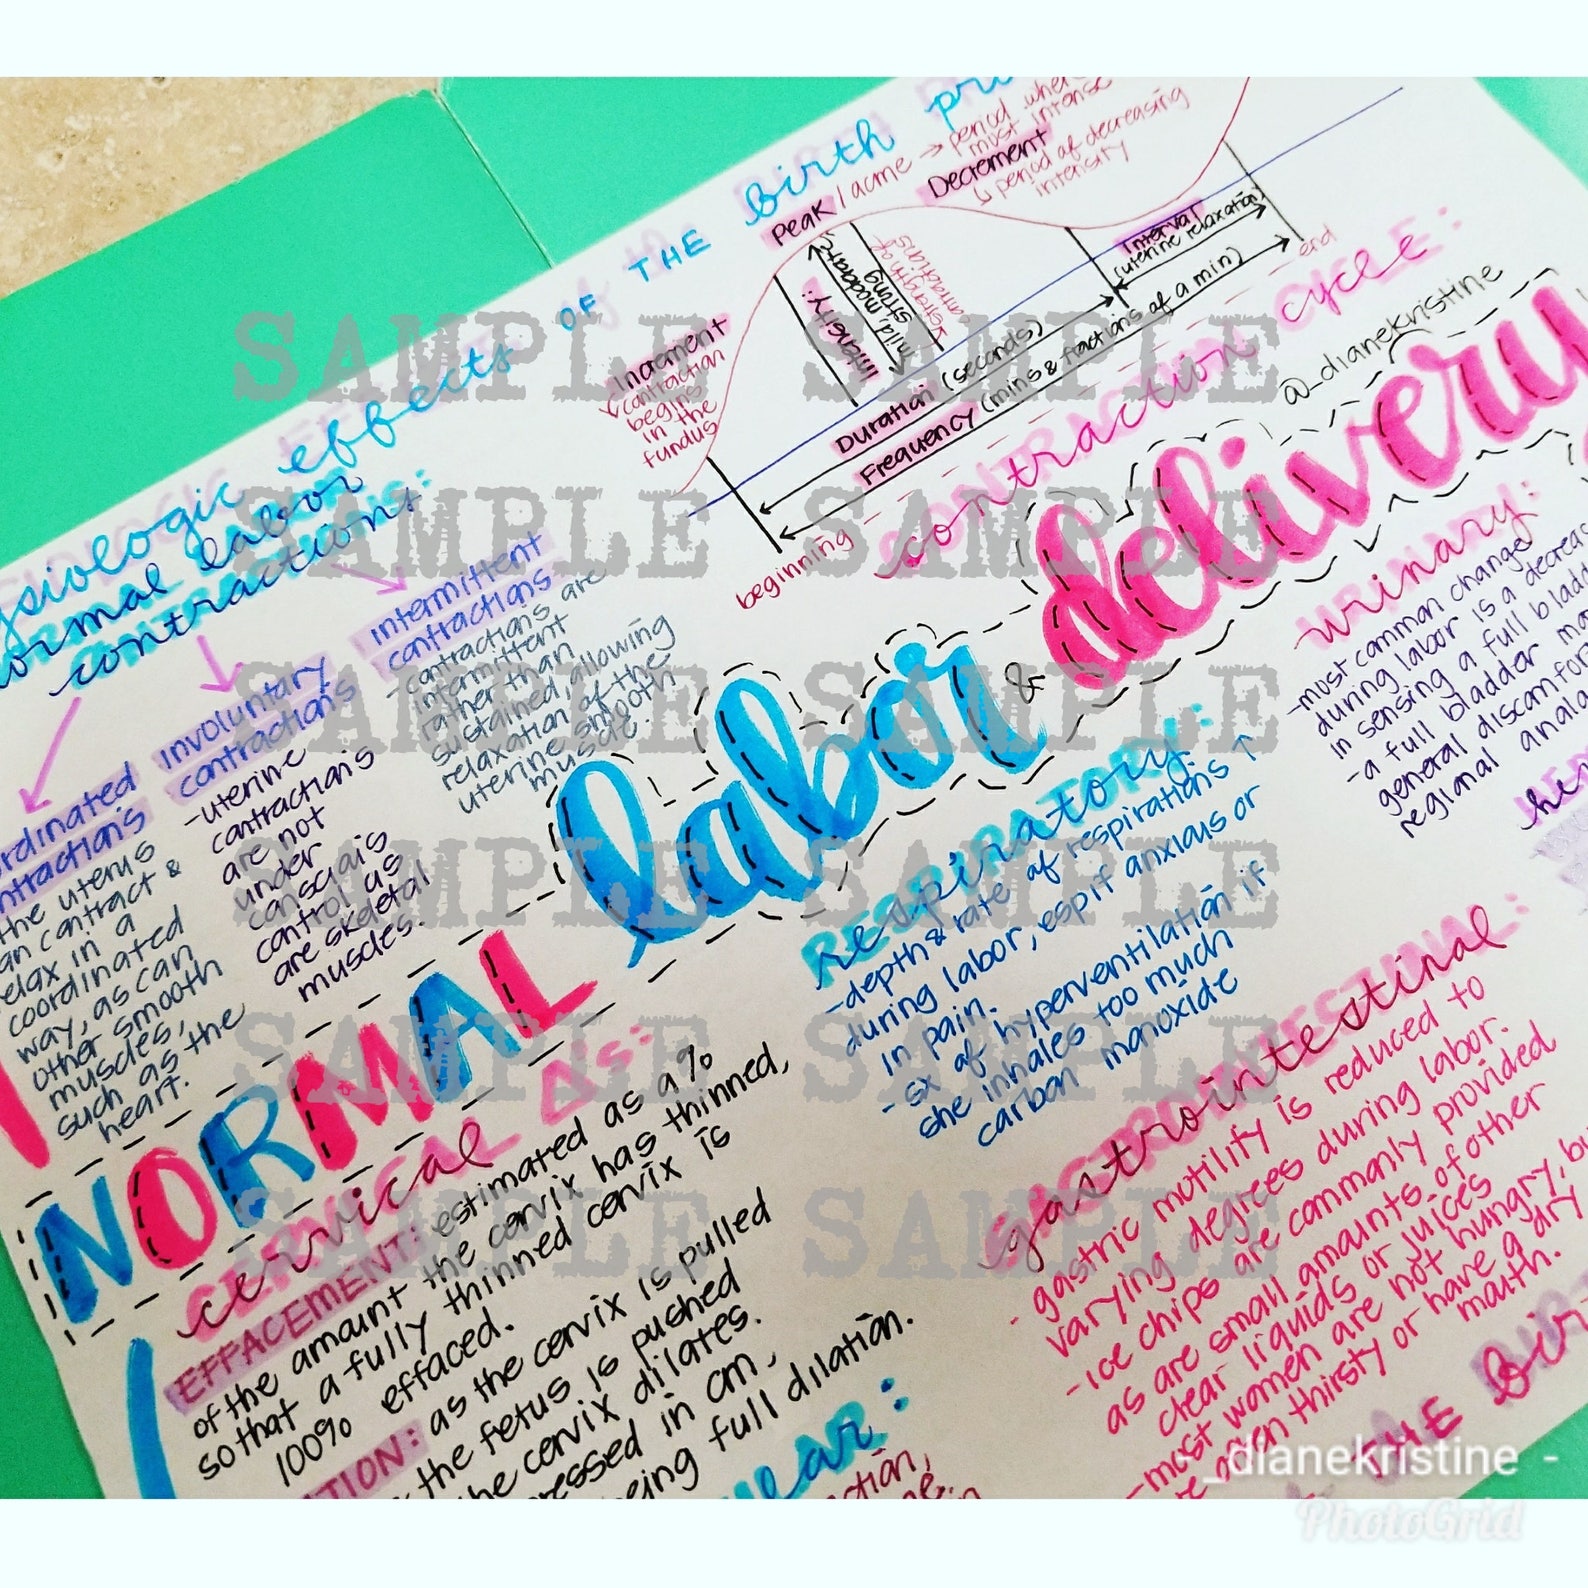 OF THE Birth
Peak / acme → period
most intense
Decrement
↳ period of decreasing
intensity
Increment
↳ contraction
begins
in the
fundus
Intensity:
mild, moderate,
strong
strength of
contractions
Interval
(uterine relaxation)
Duration (seconds)
Frequency (mins & fractions of a min)
beginning
end
contraction cycle:
@_dianekristine
effects
normal labor
contractions:
intermittent
contractions
- contractions are
intermittent
rather than
sustained, allowing
relaxation of the
uterine smooth
muscle.
involuntary
contractions
- uterine
contractions
are not
under
consciois
control as
are skeletal
muscles.
the uterus
can contract &
relax in a
coordinated
way, as can
other smooth
muscles,
such as the
heart.
NORMAL labor & delivery
respiratory:
- depth & rate of respirations ↑
during labor, espif anxious or
in pain.
- sx of hyperventilation if
she inhales too much
carbon monoxide
urinary:
- most common change
during labor is a
in sensing a full
- a full bladder
general
regional
gastrointestinal:
GASTROINTESTINAL
- gastric motility is reduced to
varying degrees during labor.
- ice chips are commonly provided
as are small amounts of other
clear liquids or juices
- most women are not hungry,
are often thirsty or have a dry
mouth.
THE Bir
cervical Δs:
CERVICAL
EFFACEMENT: estimated as a %
of the amount the cervix has thinned,
so that a fully thinned cervix is
100% effaced.
as the cervix is pulled
the fetus is pushed
the cervix dilates.
in cm,
being full dilation.
_dianekristine -
PhotoGrid
SAMPLE SAMPLE
SAMPLE SAMPLE
SAMPLE SAMPLE
SAMPLE SAMPLE
SAMPLE SAMPLE
SAMPLE SAMPLE